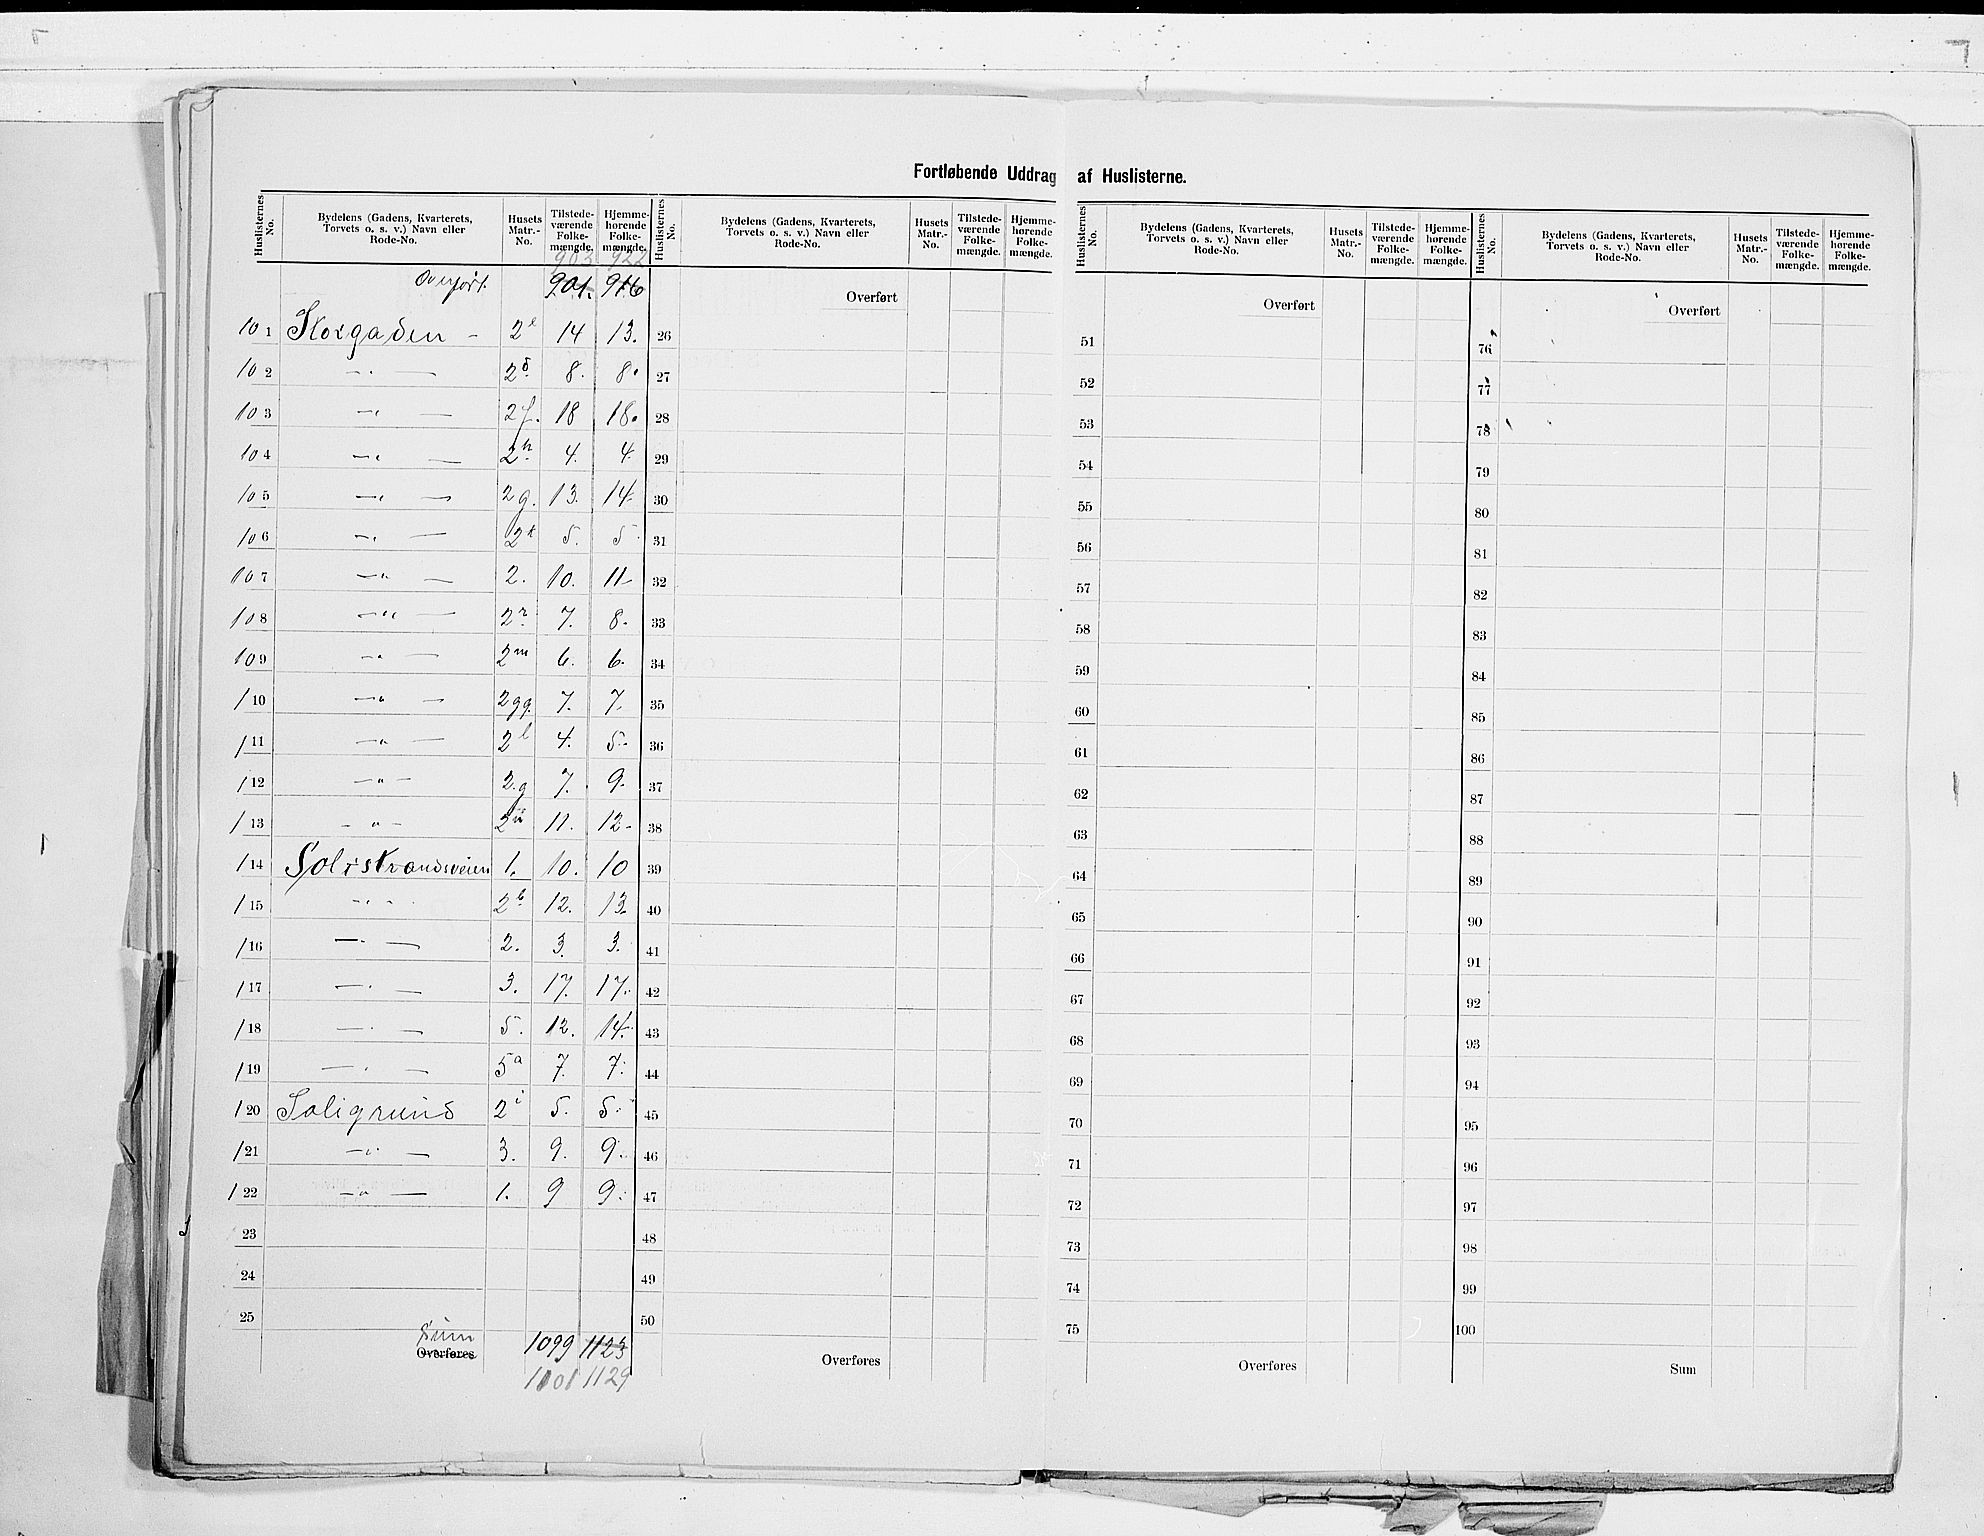 Fortløbende Uddrag af Huslisterne.
Huslisternes No. Bydelens (Gadens, Kvarterets, Torvets o. s. v.) Navn eller Rode-No. Husets Matr.-No. Tilstede-værende Folke-mængde. Hjemme-hørende Folke-mængde.
903 922
Overført. 901. 916
101 Storgaden - 2e 14 13.
102 -"- 2d. 8. 8.
103 -"- 2f. 18 18.
104 -"- 2h. 4. 4.
105 -"- 2g. 13. 14.
106 -"- 2k 5. 5.
107 -"- 2. 10. 11.
108 -"- 2r. 7. 8.
109 -"- 2m 6. 6.
110 -"- 2gg. 7. 7.
111 -"- 2l 4. 5.
112 -"- 2.g 7. 9.
113 -"- 11. 12.
114 1. 10. 10
115 -"- 2b. 12. 13.
116 -"- 2. 3. 3.
117 -"- 3. 17. 17.
118 -"- 5. 12. 14.
119 -"- 5a 7. 7.
120 Soligrund 2i 5. 5.
121 -"- 3. 9. 9.
122 -"- 1. 9 9.
23
24
25
Sum
Overføres 1099 1123
1101 1129
Huslisternes No. Bydelens (Gadens, Kvarterets, Torvets o. s. v.) Navn eller Rode-No. Husets Matr.-No. Tilstede-værende Folke-mængde. Hjemme-hørende Folke-mængde.
Overført
26
27
28
29
30
31
32
33
34
35
36
37
38
39
40
41
42
43
44
45
46
47
48
49
50
Overføres
Huslisternes No. Bydelens (Gadens, Kvarterets, Torvets o. s. v.) Navn eller Rode-No. Husets Matr.-No. Tilstede-værende Folke-mængde. Hjemme-hørende Folke-mængde.
Overført
51
52
53
54
55
56
57
58
59
60
61
62
63
64
65
66
67
68
69
70
71
72
73
74
75
Overføres
Huslisternes No. Bydelens (Gadens, Kvarterets, Torvets o. s. v.) Navn eller Rode-No. Husets Matr.-No. Tilstede-værende Folke-mængde. Hjemme-hørende Folke-mængde.
Overført
76
77
78
79
80
81
82
83
84
85
86
87
88
89
90
91
92
93
94
95
96
97
98
99
100
Sum